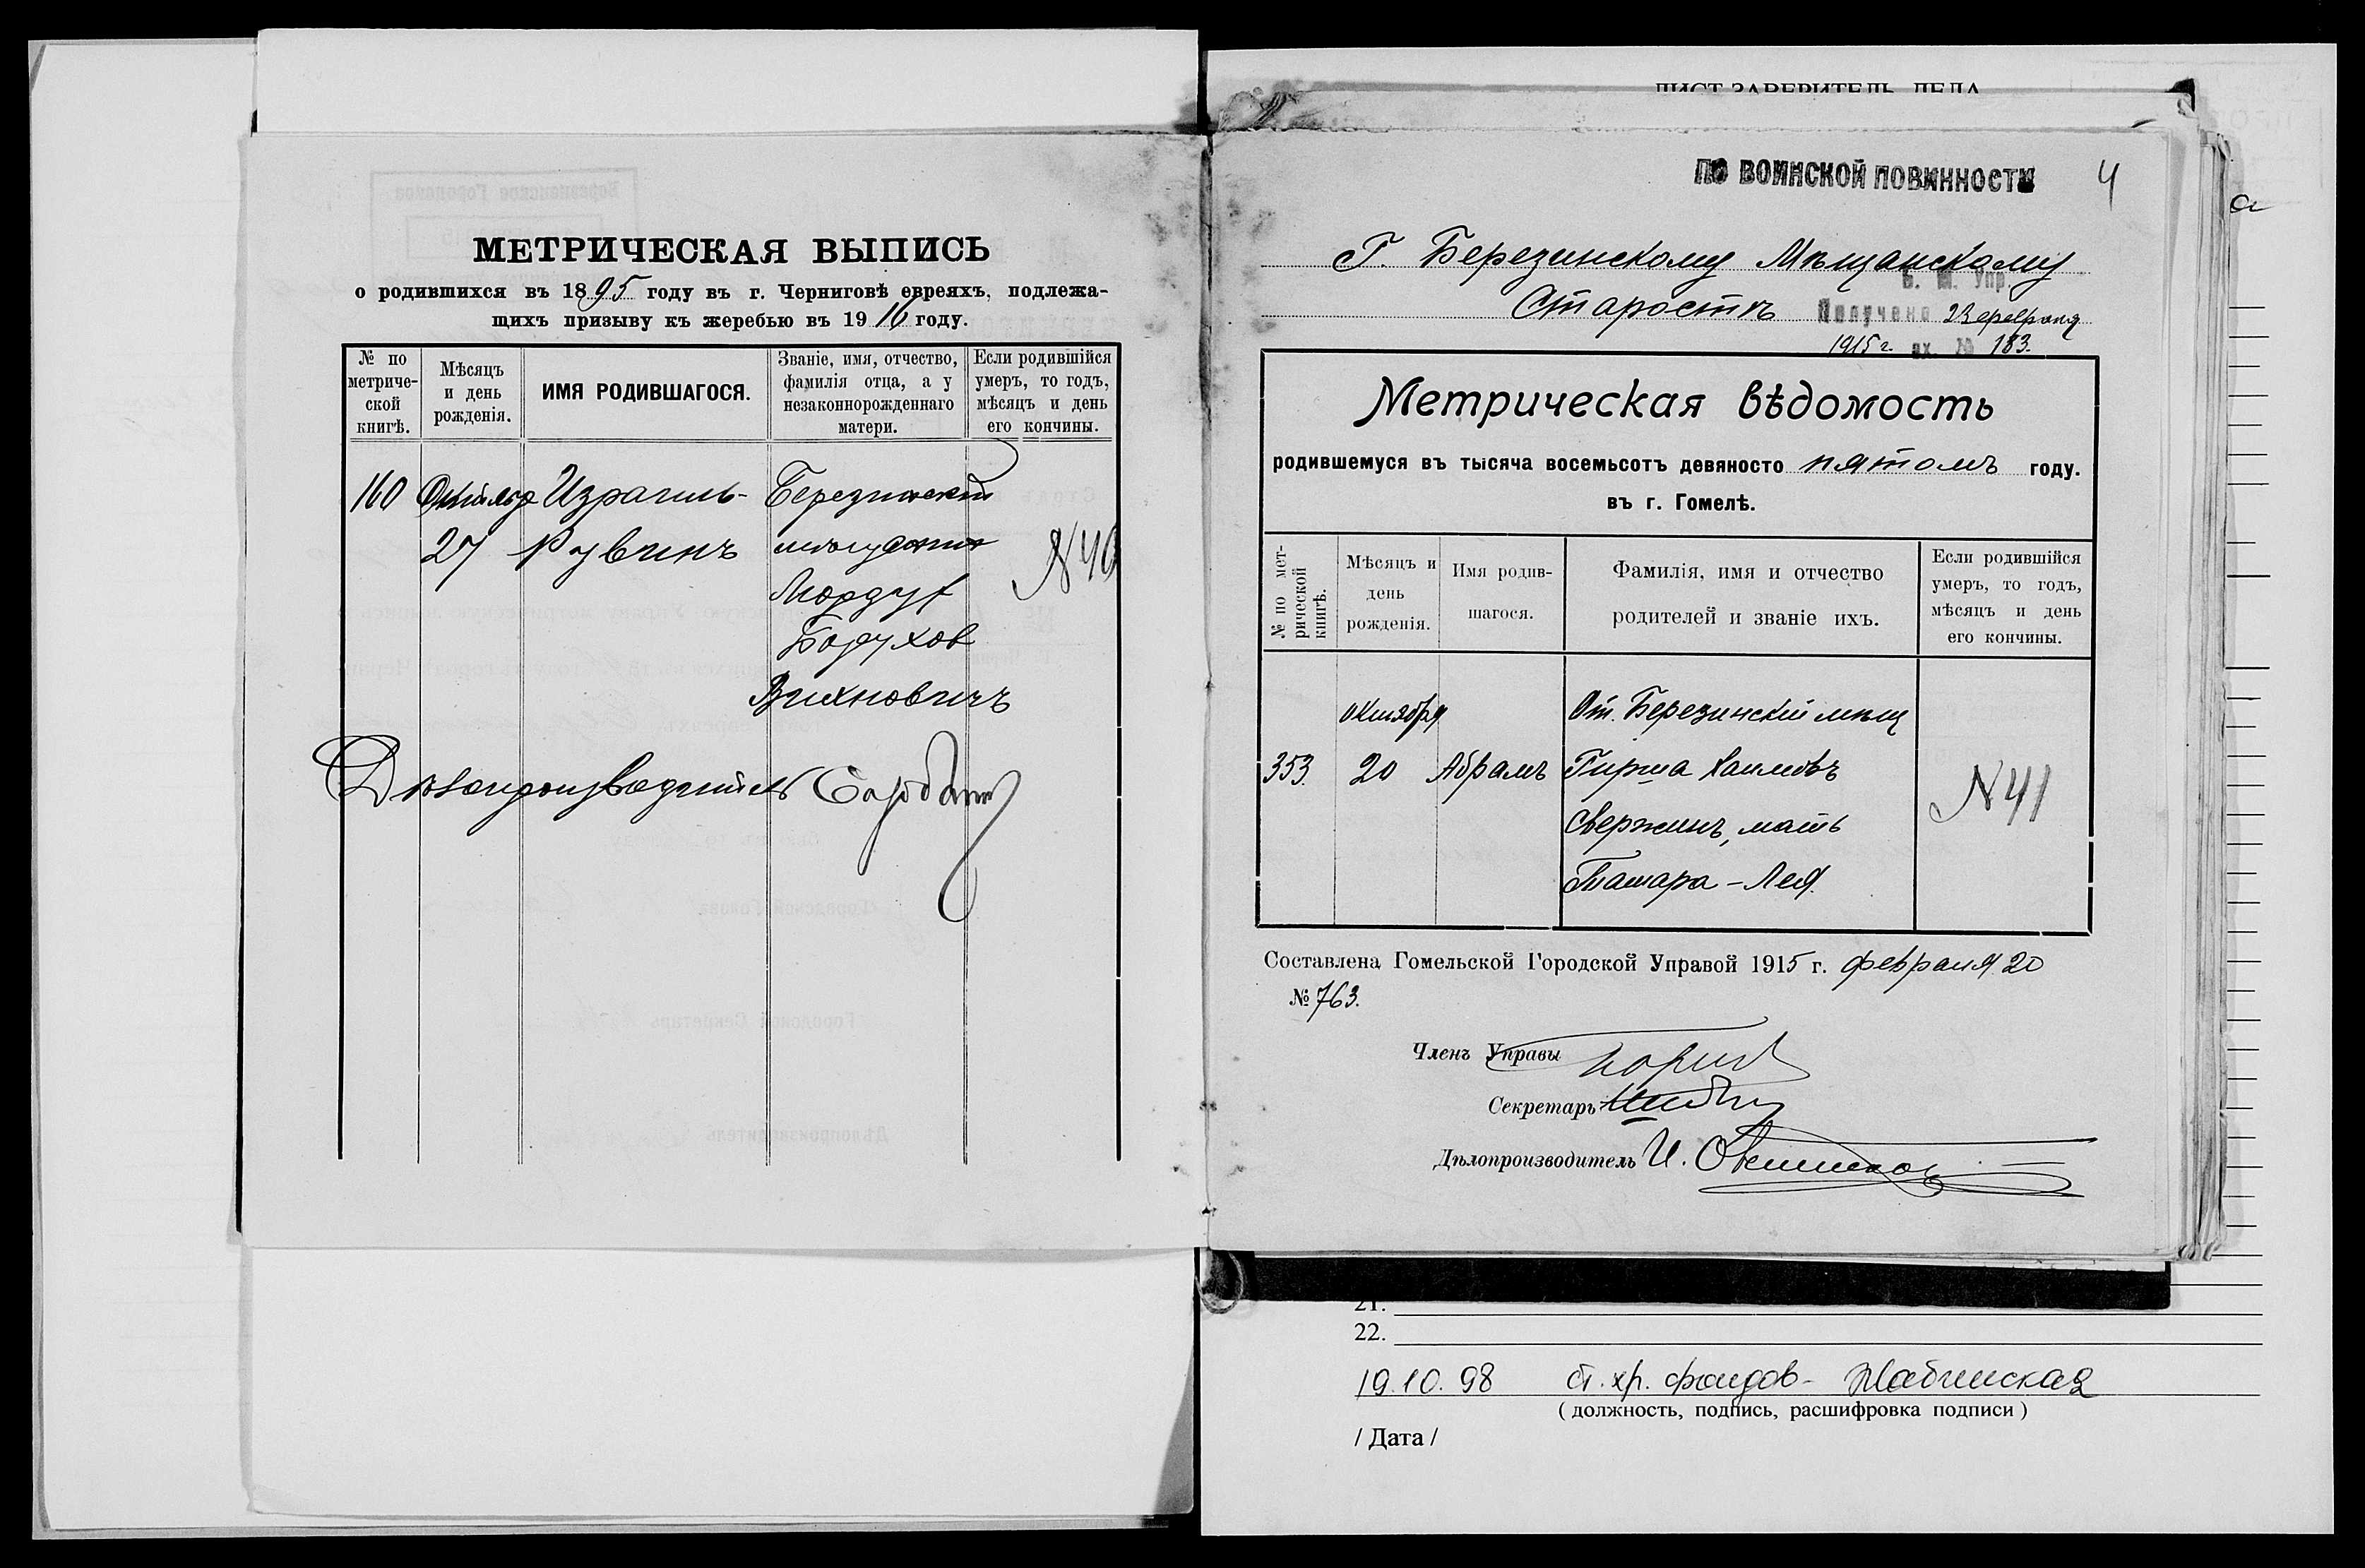 МЕТРИЧЕСКАЯ ВЫПИСЬ
о родившихся въ 1895 году въ г. Черниговѣ евреяхъ, подлежа-
щихъ призыву къ жеребью въ 1916 году.
№ по метриче-ской книгѣ.
Мѣсяцъ и день рожденія.
ИМЯ РОДИВШАГОСЯ.
Званіе, имя, отчество, фамилія отца, а у незаконнорожденнаго матери.
Если родившійся умеръ, то годъ, мѣсяцъ и день его кончины.
160 Октября Израиль- Березинскій
27 Рувинъ мѣщанин N40
Мордух
Борухов
Вихновичъ
Дѣлопроизводитель
ЛИСТ-ЗАВЕРИТЕЛЬ ДЕЛА
ПО ВОИНСКОЙ ПОВИННОСТИ 4
Г. Березинскому Мѣщанскому
Б. М. Упр.
Старостѣ Получено 23 февраля
1915 г. вх. № 183.
Метрическая вѣдомость
родившемуся въ тысяча восемьсотъ девяносто пятомъ году.
въ г. Гомелѣ.
№ по мет-рической книгѣ.
Мѣсяцъ и день рожденія.
Имя родив-шагося.
Фамилія, имя и отчество родителей и званіе ихъ.
Если родившійся умеръ, то годъ, мѣсяцъ и день его кончины.
октября От. Березинскій мѣщ
353. 20 Абрамъ Гирша Хаимовъ
Свержинъ, мать N41
Тамара-Лея.
Составлена Гомельской Городской Управой 1915 г. февраля 20
№ 763.
Членъ Управы
Секретарь
Дѣлопроизводитель И.
21.
22.
19.10.98 ст. хр. фондов-
( должность, подпись, расшифровка подписи )
/ Дата /